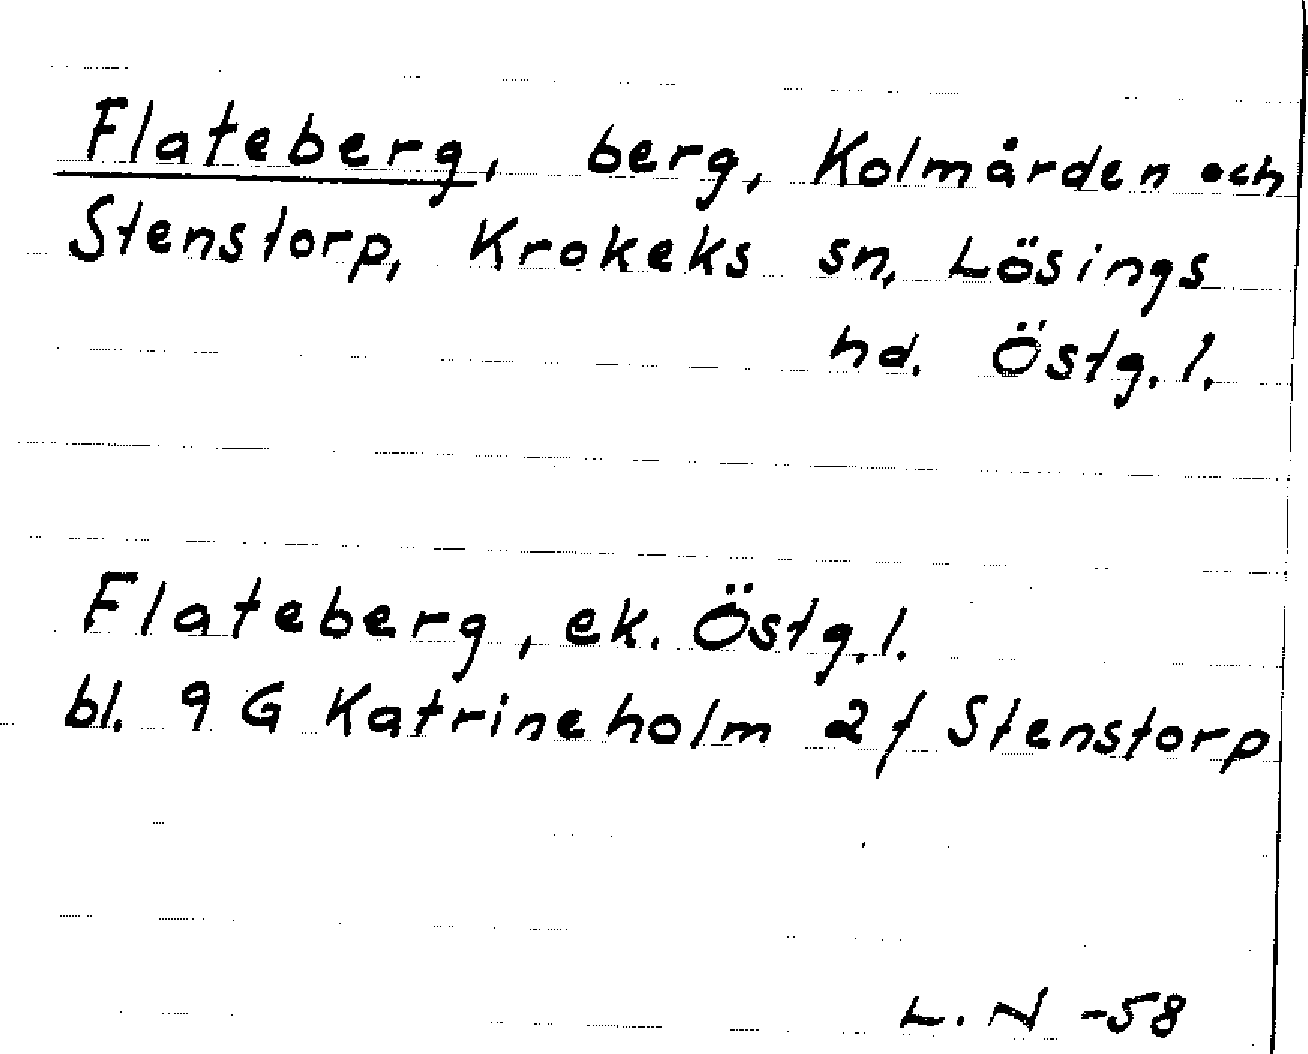 Flateberg, berg, Kolmården och
Stenstorp, Krokeks sn, Lösings
hd. Östg. l.
Flateberg, ek. Östg. l.
bl. 9 G Katrineholm 2 f Stenstorp
L. N -58